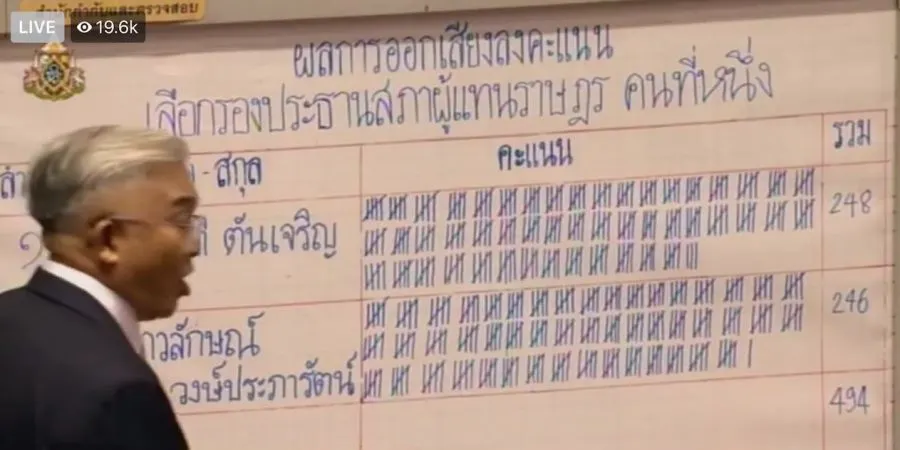 สำนักกำกับและตรวจสอบ
LIVE 19.6k
ผลการออกเสียงลงคะแนน
เลือกรองประธานสภาผู้แทนราษฎร คนที่หนึ่ง
ลำ - สกุล คะแนน รวม
๑ ตันเจริญ 248
าวลักษณ์ 246
วงษ์ประภารัตน์
494